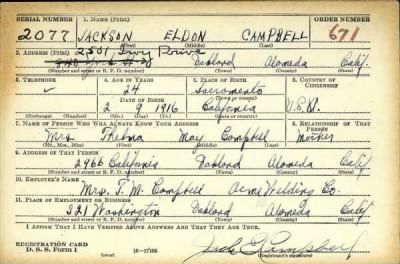 SERIAL NUMBER 1. NAME (Print) ORDER NUMBER
2077 JACKSON ELDON CAMPBELL 671
(First) (Middle) (Last)
2501 Ivy Drive
2. ADDRESS (Print)
Oakland Alameda Calif.
(Number and street or R. F. D. number) (Town) (County) (State)
3. TELEPHONE 4. AGE IN YEARS 5. PLACE OF BIRTH 6. COUNTRY OF CITIZENSHIP
✓ 24 Sacramento
DATE OF BIRTH (Town or county)
2 2 1916 California U.S.A.
(Exchange) (No.) (Mo.) (Day) (Yr.) (State or country)
7. NAME OF PERSON WHO WILL ALWAYS KNOW YOUR ADDRESS 8. RELATIONSHIP OF THAT PERSON
Mrs. Thelma May Campbell Mother
(Mr., Mrs., Miss) (First) (Middle) (Last)
9. ADDRESS OF THAT PERSON
2966 California Oakland Alameda Calif
(Number and street or R. F. D. number) (Town) (County) (State)
10. EMPLOYER'S NAME
Mrs. T. M. Campbell Acme Welding Co.
11. PLACE OF EMPLOYMENT OR BUSINESS
321 Washington Oakland Alameda Calif
(Number and street or R. F. D. number) (Town) (County) (State)
I AFFIRM THAT I HAVE VERIFIED ABOVE ANSWERS AND THAT THEY ARE TRUE.
REGISTRATION CARD
D. S. S. Form 1 16—17105
(over) (Registrant's signature)